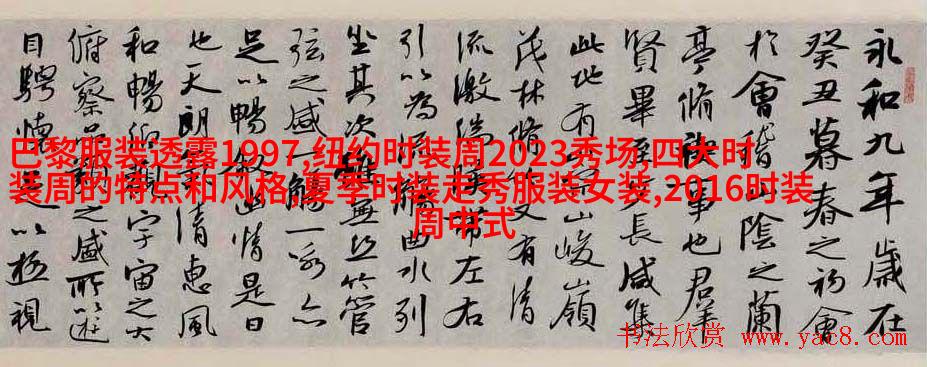 巴黎服装透露1997,纽约时装周2023秀场,四大时
装周的特点和风格,夏季时装走秀服装女装,2016时装
周中式
永和九年歲在
癸丑暮春之初會
於會稽山陰之蘭
亭脩禊事也群
賢畢至少長咸集
此地有崇山峻嶺
茂林脩竹又有清
流激湍映帶左右
引以為流觴曲水列
坐其次雖無絲竹管
弦之盛一觴一詠亦
足以暢敘幽情是日
也天朗氣清惠風
和暢仰觀宇宙之大
俯察品類之盛所以遊
目騁懷足以極視
书法欣赏 www.yac8.com